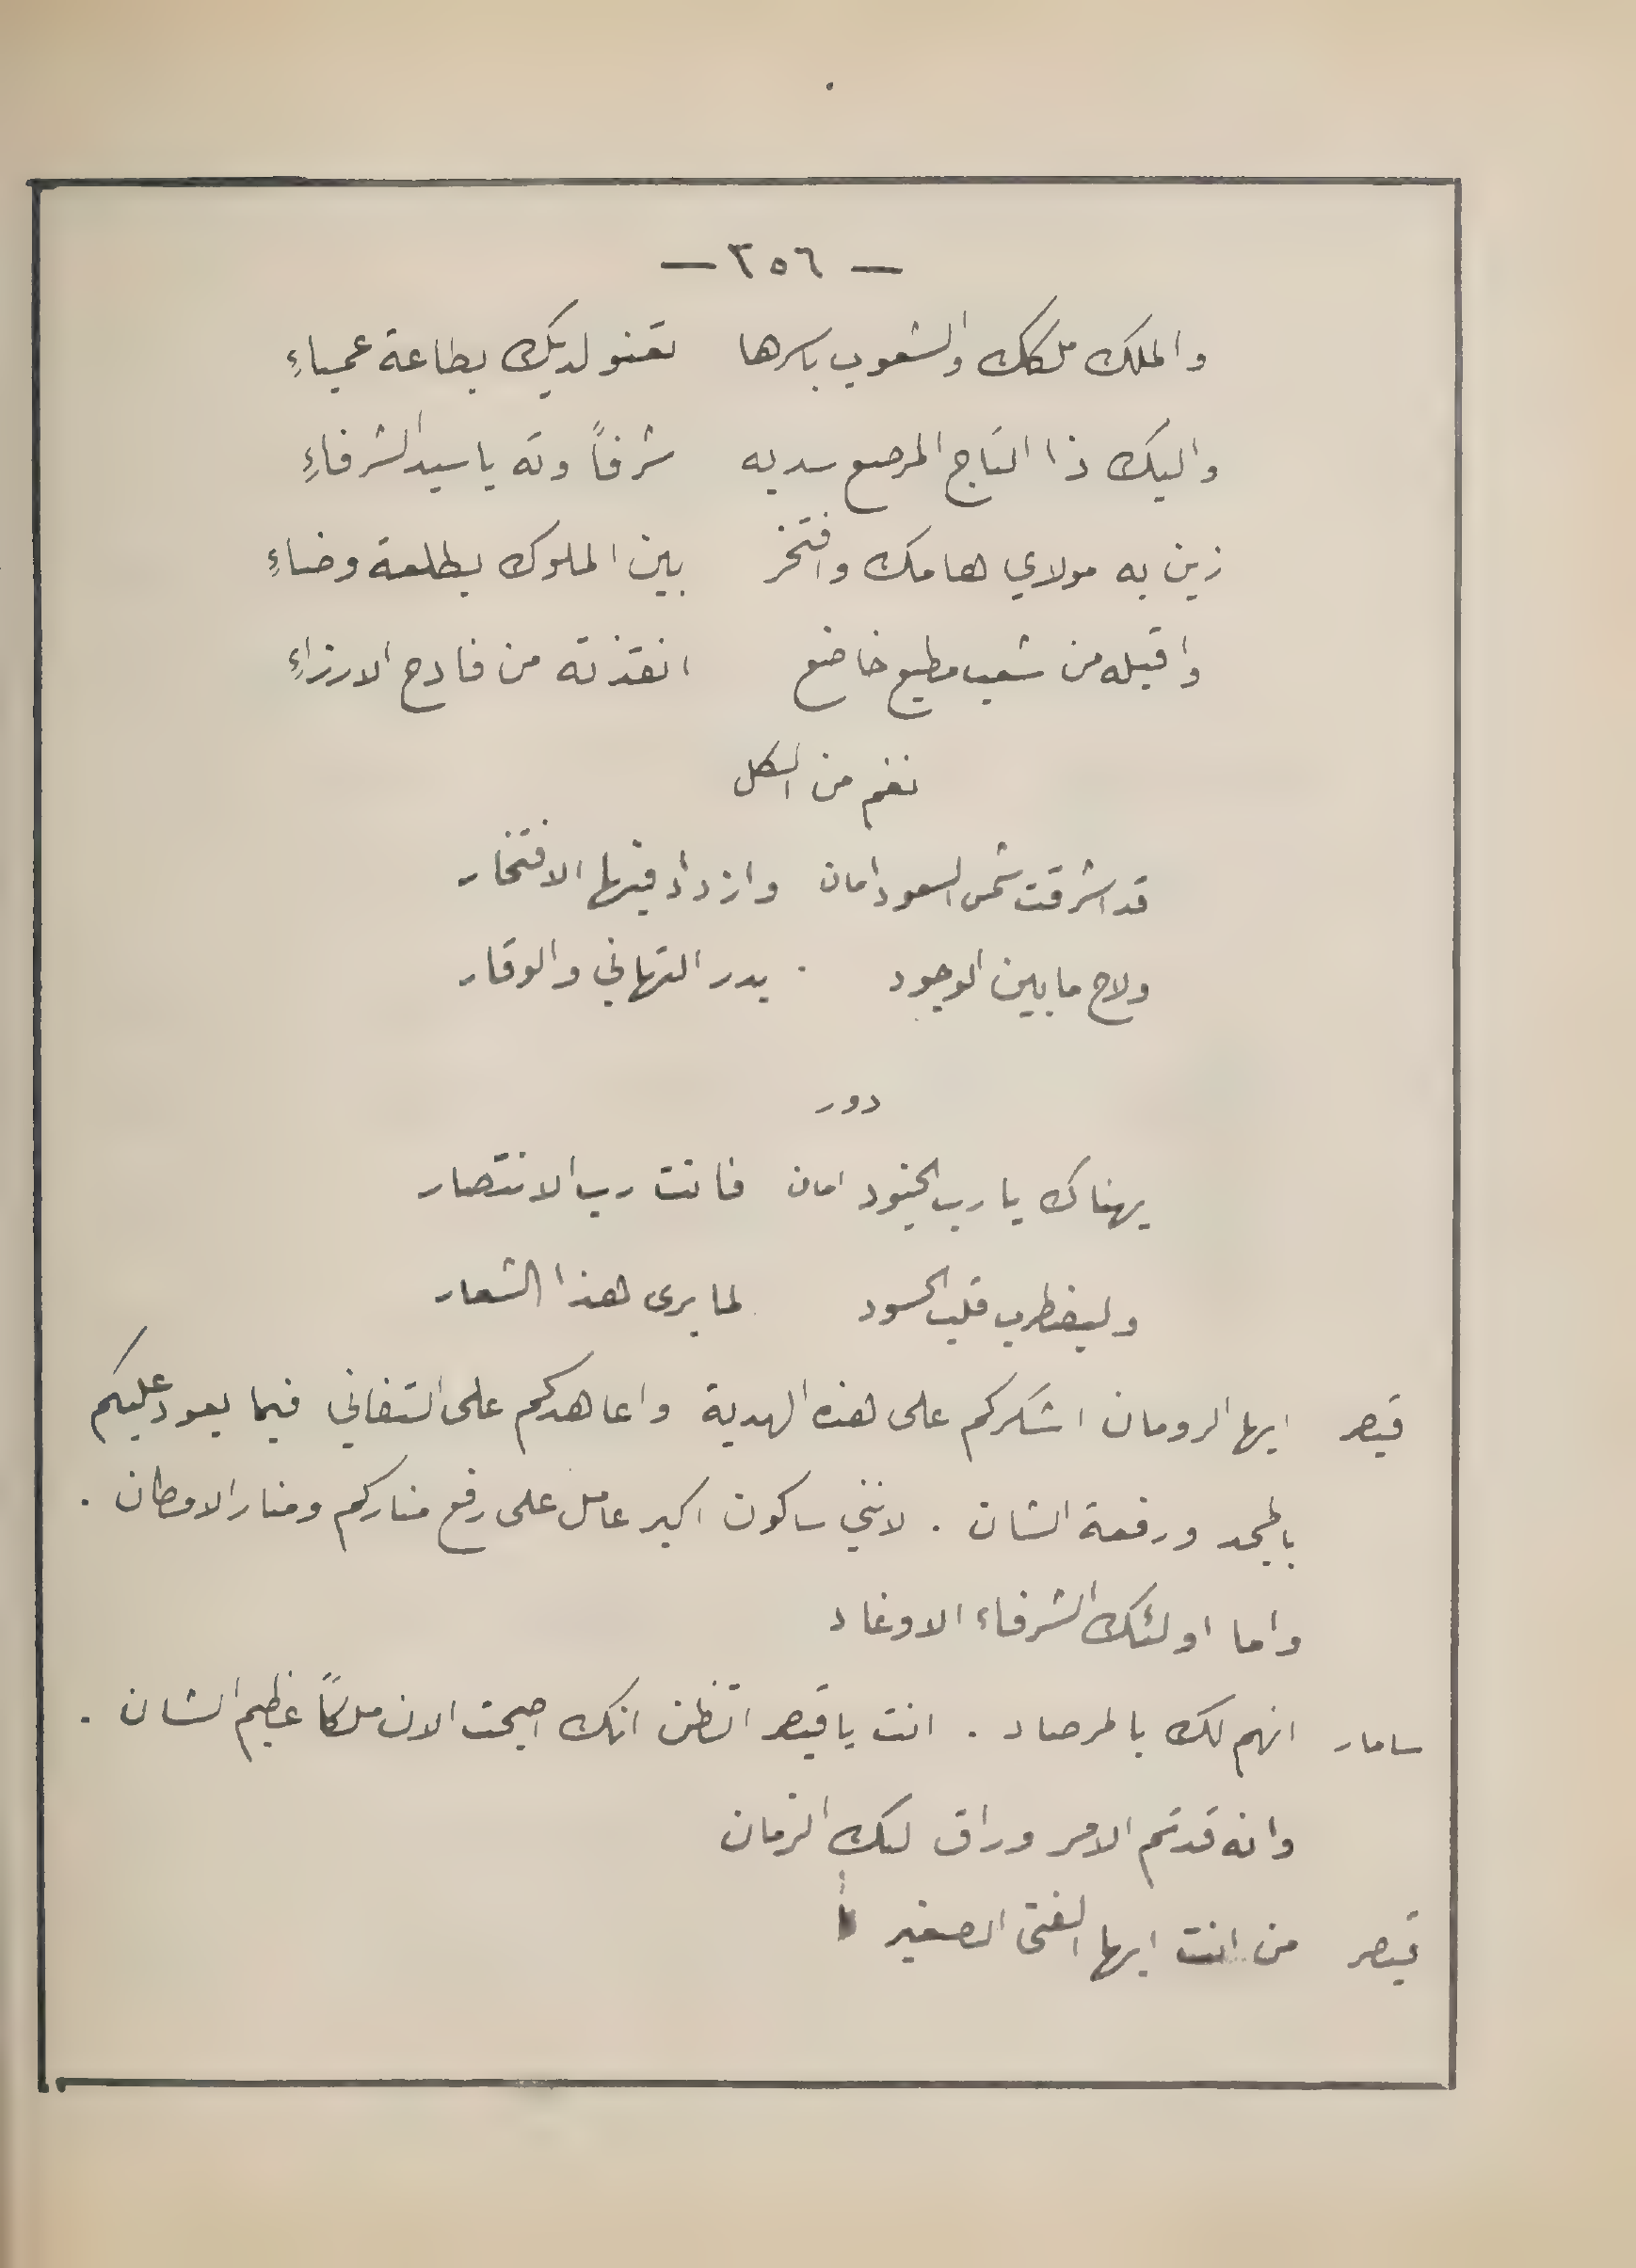 — ٢٥٦ —
والملك ملكك والشعوب باسرها تعنو لديك بطاعة عمياءِ
واليك ذا التاج المرصع سد به شرفاً وته يا سيد الشرفاءِ
زين به مولاي هامك وافتخر بين الملوك بطلعة وضاءِ
واقبله من شعب مطيع خاضع انقذته من فادح الارزاءِ
نغم من الكل
قد اشرقت شمس السعود امان وازداد فيها الافتخار
ولاح ما بين الوجود . بدر التهاني والوقار
دور
يهناك يا رب الجنود امان فانت رب الانتصار
وليضطرب قلب الحسود لما يرى هذا الشعار
قيصر ايها الرومان اشكركم على هذه الهدية واعاهدكم على التفاني فيما يعود عليكم
بالمجد ورفعة الشان . لانني ساكون اكبر عامل على رفع مناركم ومنار الاوطان .
واما اولئك الشرفاء الاوغاد
سامار انهم لك بالمرصاد . انت يا قيصر اتظن انك اصبحت الان ملكاً عظيم الشان .
وانه قد تم الامر وراق لك الزمان
قيصر من انت ايها الفتى الصغير